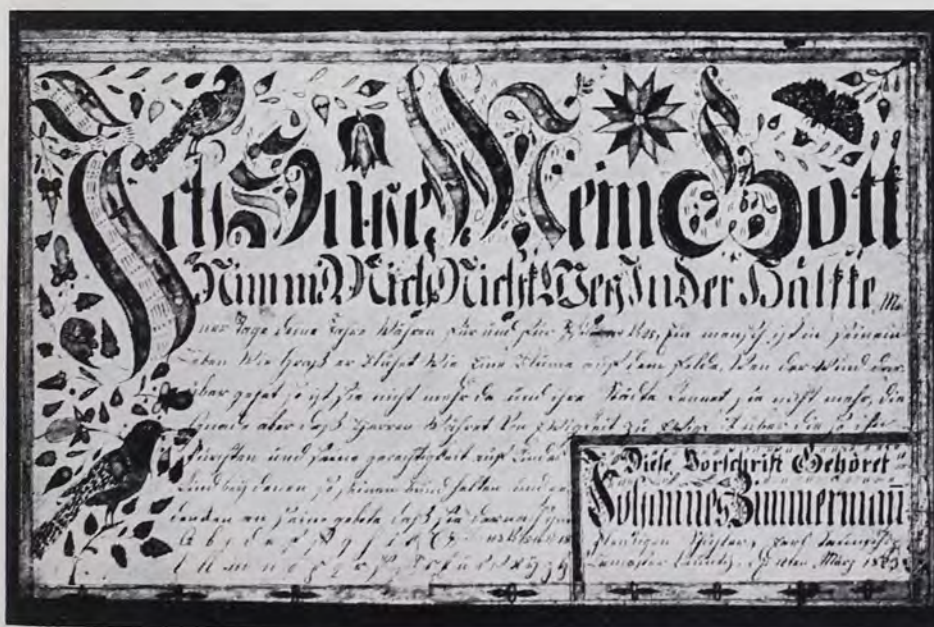 Ich Sage Mein Gott
Nimm Mich Nicht Weg In der Hälffte Mei
ner Tage deine Jahre Währen für und für Ein mensch ist in seinem
Leben Wie Graß er blühet Wie Eine Blume auf dem felde, Wen der Wind dar
über gehet so ist sie nicht mehr da und ihre stätte kennet sie nicht mehr, die
Gnade aber deß Herren Währet Von Ewigkeit zu über die so ihn
fürchten und seine gerechtigkeit auf kindes
kind bey denen so seinen bund halten und ge
dencken an seine gebote daß sie darnach
Diese Vorschrift Gehöret
Johannes Zimmerman̅
Schüler, Earl
Lancaster Caunty, März